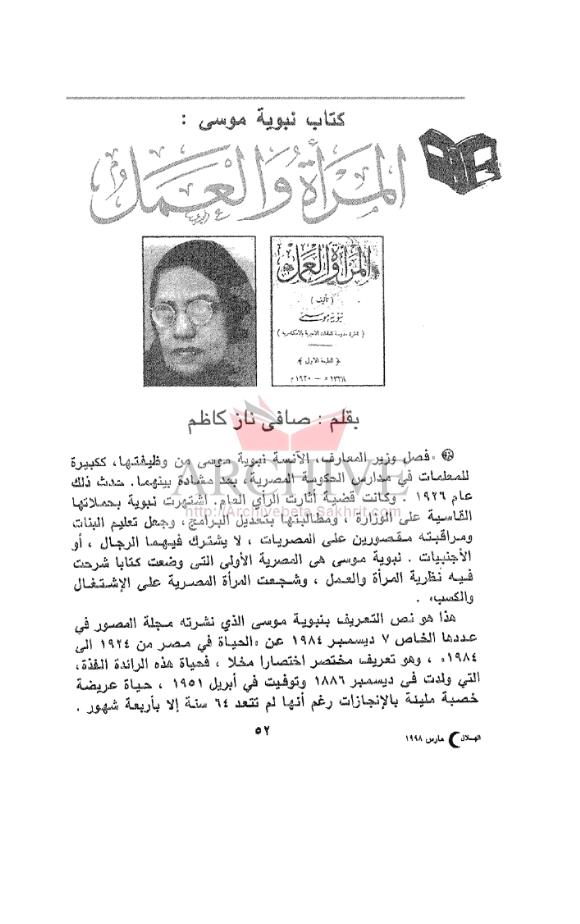 كتاب نبوية موسى :
المرأة والعمل
المرأة والعمل
( تأليف )
نبوية موسى
( الطبعة الاولى )
١٣٣٨ هـ - ١٩٢٠ م
بقلم : صافى ناز كاظم
ARCHIVE
http://Archivebeta.Sakhrit.com
«فصل وزير المعارف، الآنسة نبوية موسى من وظيفتها، ككبيرة
للمعلمات في مدارس الحكومة المصرية، بعد مشادة بينهما. حدث ذلك
عام ١٩٢٦ . وكانت قضية أثارت الرأى العام. اشتهرت نبوية بحملاتها
القاسية على الوزارة ، ومطالبتها بتعديل البرامج، وجعل تعليم البنات
ومراقبته مقصورين على المصريات ، لا يشترك فيهما الرجال ، أو
الأجنبيات . نبوية موسى هى المصرية الأولى التى وضعت كتابا شرحت
فيه نظرية المرأة والعمل ، وشجعت المرأة المصرية على الإشتغال
والكسب» .
هذا هو نص التعريف بنبوية موسى الذي نشرته مجلة المصور في
عددها الخاص ٧ ديسمبر ١٩٨٤ عن «الحياة في مصر من ١٩٢٤ الى
١٩٨٤» ، وهو تعريف مختصر اختصارا مخلا ، فحياة هذه الرائدة الفذة،
التي ولدت فى ديسمبر ١٨٨٦ وتوفيت في أبريل ١٩٥١ ، حياة عريضة
خصبة مليئة بالإنجازات رغم أنها لم تتعد ٦٤ سنة إلا بأربعة شهور .
٥٢
الهلال مارس ١٩٩٨